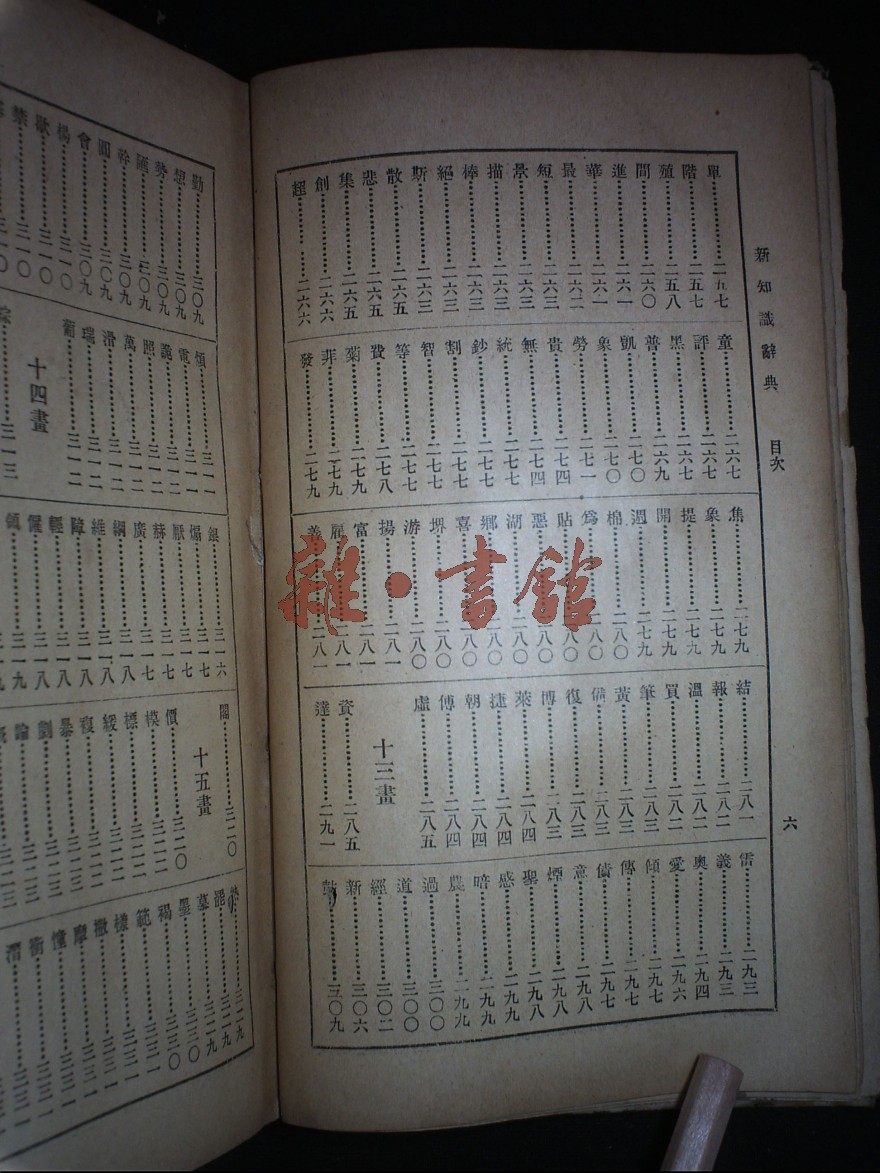 新知識辭典 目次 六
單………二五七
階………二五七
殖………二五八
間………二六〇
進………二六一
華………二六一
最………二六二
短………二六三
景………二六三
描………二六三
棒………二六三
絕………二六三
斯………二六三
散………二六五
悲………二六五
集………二六五
創………二六六
超………二六六
童………二六七
評………二六七
黑………二六七
普………二六九
凱………二七〇
象………二七〇
勞………二七一
貴………二七四
無………二七四
統………二七七
鈔………二七七
割………二七七
智………二七七
等………二七七
費………二七八
菊………二七九
非………二七九
發………二七九
焦………二七九
象………二七九
提………二七九
開………二七九
週………二七九
棉………二八〇
爲………二八〇
貼………二八〇
惡………二八〇
湖………二八〇
鄉………二八〇
喜………二八〇
堺………二八〇
游………二八〇
揚………二八一
富………二八一
雇………二八一
義………二八一
結………二八一
報………二八二
溫………二八二
買………二八二
筆………二八三
黃………二八三
備………二八三
復………二八三
博………二八三
萊………二八四
捷………二八四
朝………二八四
傅………二八四
虛………二八五
十三畫
資………二八五
達………二九一
雷………二九三
義………二九三
奧………二九四
愛………二九六
傾………二九七
傳………二九七
債………二九七
意………二九八
煙………二九八
聖………二九八
感………二九九
暗………二九九
農………二九九
過………三〇〇
道………三〇〇
經………三〇二
新………三〇六
三〇九
勤………三〇九
想………三〇九
勢………三〇九
匯………三〇九
幹………三〇九
圓………三〇九
會………三〇九
楊………三一〇
歇………三一〇
禁………三一〇
煩………三一一
電………三一一
詭………三一二
照………三一二
萬………三一二
滑………三一二
瑞………三一二
葡………三一二
十四畫
三一三
銀………三一六
煽………三一七
厭………三一七
赫………三一七
廣………三一七
綱………三一八
維………三一八
障………三一八
輕………三一八
開………三二〇
十五畫
價………三二〇
模
標
緩
複
暴
劇
論
罷
墓
墨
褐
範
樣
撒
摩
憧
衝
潛
雜·書館